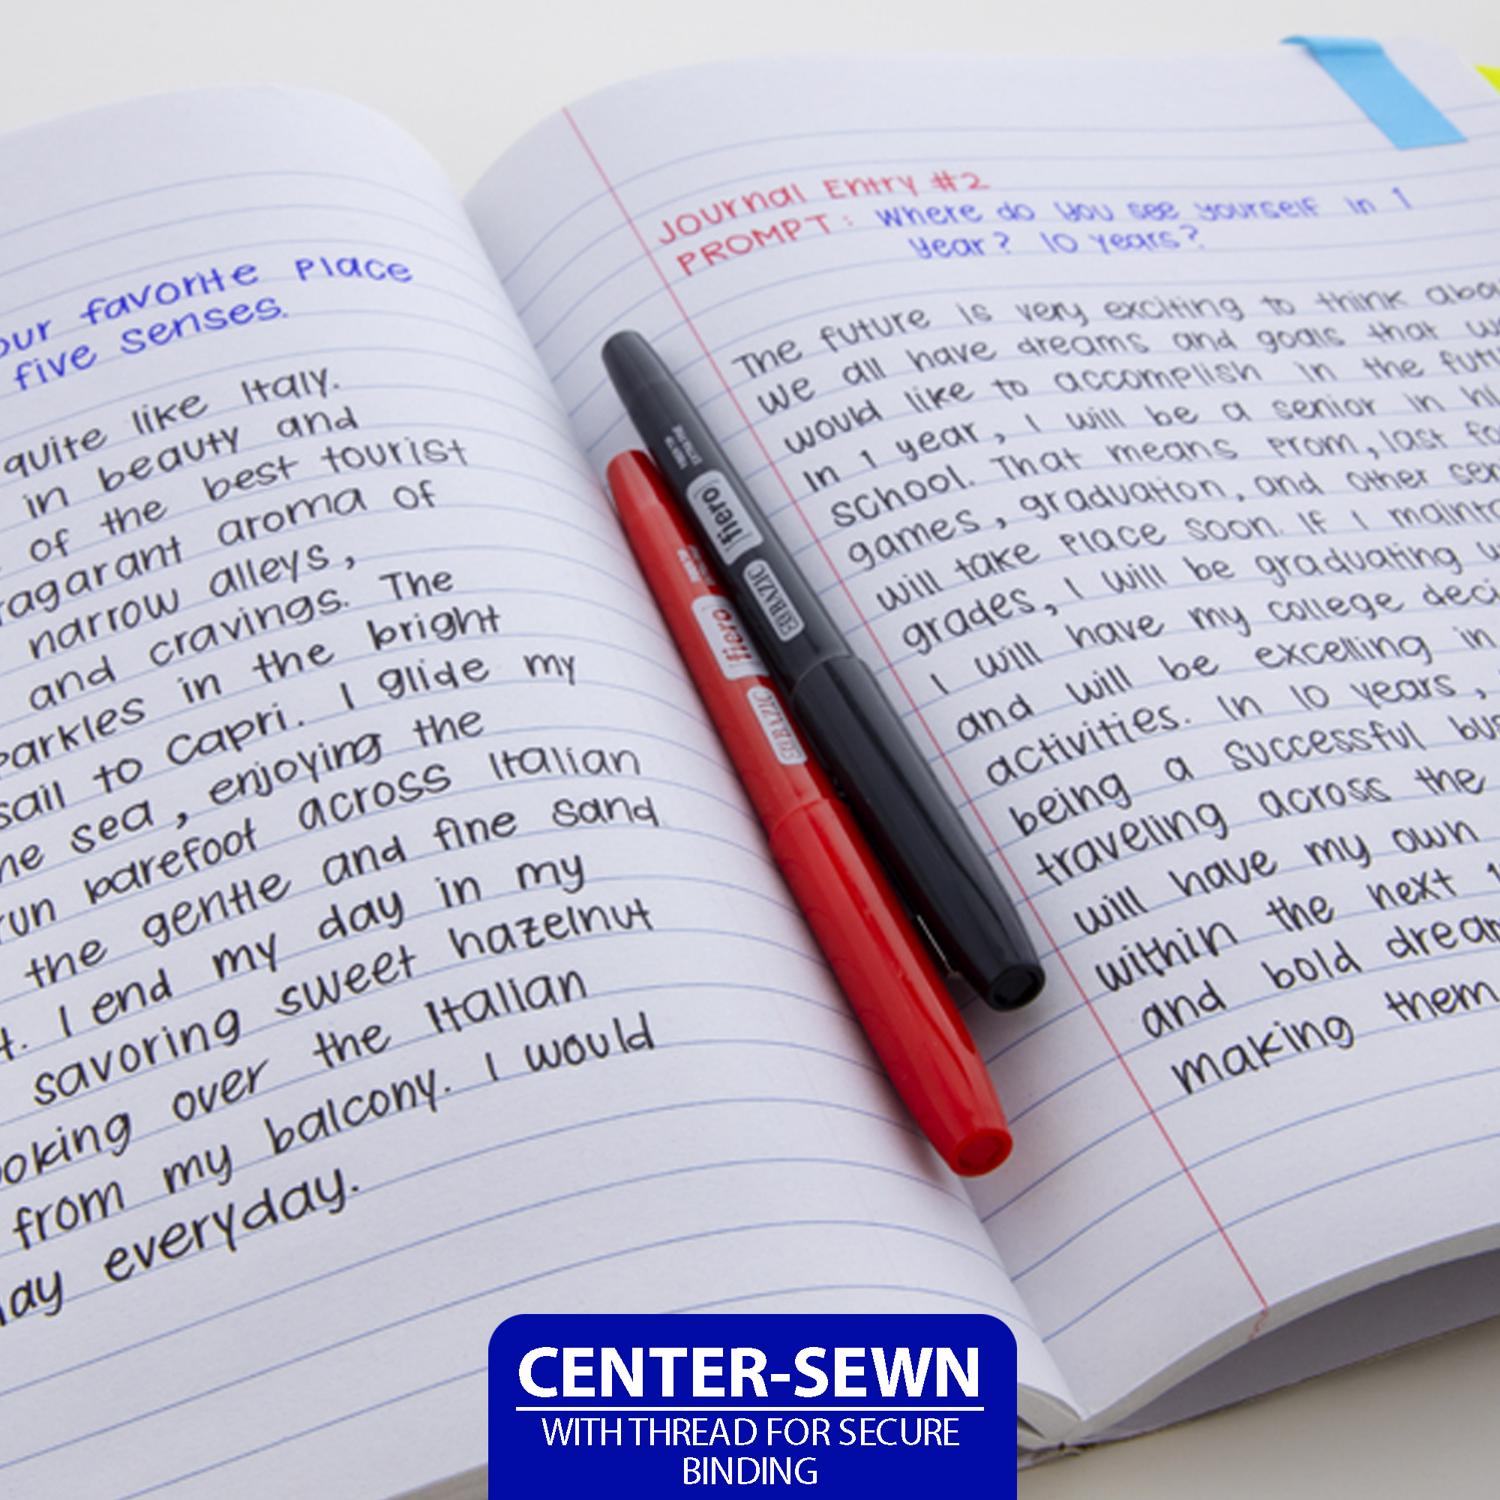 our favorite place
five senses.
quite like Italy.
in beauty and
of the best tourist
ragarant aroma of
narrow alleys,
and cravings. The
parkles in the bright
sail to Capri. I glide my
he sea, enjoying the
run barefoot across Italian
the gentle and fine sand
t. I end my day in my
savoring sweet hazelnut
ooking over the Italian
from my balcony. I would
day everyday.
Journal Entry #2
PROMPT: Where do you see yourself in 1
year? 10 years?
The future is very exciting to think abou
we all have dreams and goals that w
would like to accomplish in the futu
In 1 year, I will be a senior in hi
school. That means prom, last fo
games, graduation, and other sen
will take place soon. If I mainta
grades, I will be graduating w
I will have my college deci
and will be excelling in
activities. In 10 years,
being a successful bus
traveling across the
will have my own
within the next 1
and bold dream
making them
fiero
BAZIC
fiero
BAZIC
CENTER-SEWN
WITH THREAD FOR SECURE
BINDING